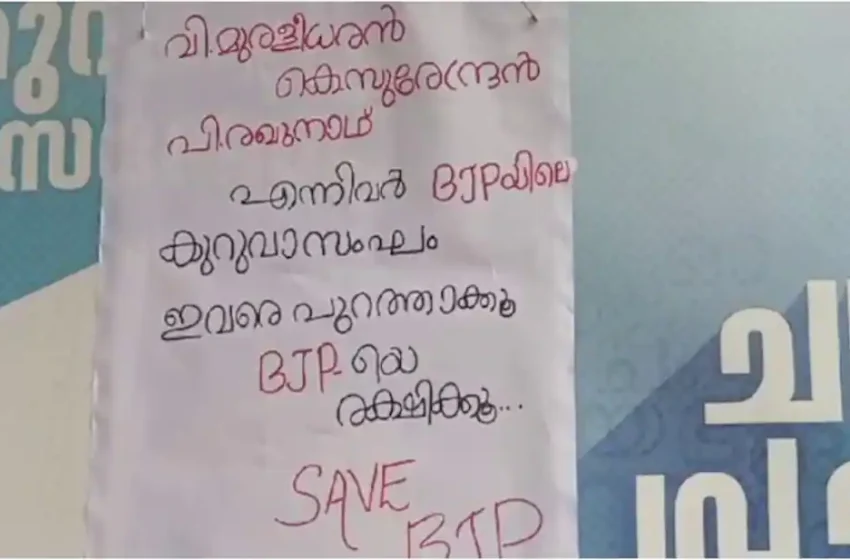 വി.മുരളീധരൻ
കെസുരേന്ദ്രൻ
പി.രഘുനാഥ്
എന്നിവർ BJPയിലെ
കുറുവാസംഘം
ഇവരെ പുറത്താക്കൂ
BJP-യെ
രക്ഷിക്കൂ...
SAVE
BJP